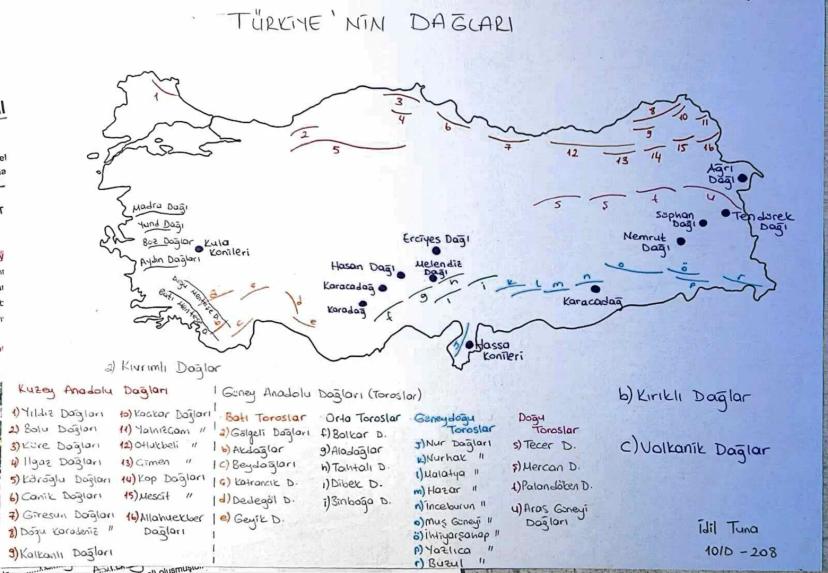 TÜRKİYE'NİN DAĞLARI
1
2
3
4
5
6
7
8
9
10
11
12
13
14
15
16
Ağrı
Dağı
Tendürek
Dağı
Süphan
Dağı
Nemrut
Dağı
Madra Dağı
Yund Dağı
Boz Dağlar
Aydın Dağları
Kula
Konileri
Erciyes Dağı
Melendiz
Dağı
Hasan Dağı
Karacadağ
Karadağ
Karacadağ
Hassa
Konileri
a) Kıvrımlı Dağlar
Kuzey Anadolu Dağları
1) Yıldız Dağları
2) Bolu Dağları
3) Küre Dağları
4) Ilgaz Dağları
5) Köroğlu Dağları
6) Canik Dağları
7) Giresun Dağları
8) Doğu Karadeniz "
9) Kalkanlı Dağları
10) Kaçkar Dağları
11) Yalnızçam "
12) Otlukbeli "
13) Çimen "
14) Kop Dağları
15) Mescit "
16) Allahuekber
Dağları
Güney Anadolu Dağları (Toroslar)
Batı Toroslar
a) Gölgeli Dağları
b) Akdağlar
c) Beydağları
ç) Katrancık D.
d) Dedegöl D.
e) Geyik D.
Orta Toroslar
f) Bolkar D.
g) Aladağlar
h) Tahtalı D.
ı) Dibek D.
i) Binboğa D.
Güneydoğu
Toroslar
j) Nur Dağları
k) Nurhak "
l) Malatya "
m) Hazar "
n) İnceburun "
o) Muş Güneyi "
ö) İhtiyarşahap "
p) Yazlıca "
r) Buzul "
Doğu
Toroslar
s) Tecer D.
ş) Mercan D.
t) Palandöken D.
u) Aras Güneyi
Dağları
b) Kırıklı Dağlar
c) Volkanik Dağlar
İdil Tuna
10/D - 208